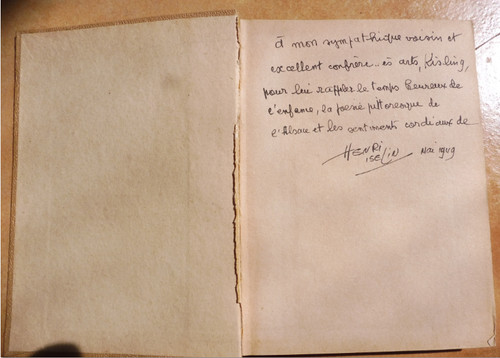 à mon sympathique voisin et
excellent confrère - ès arts, Kisling,
pour lui rappeler le temps heureux de
l'enfance, la poésie pittoresque de
l'Alsace et les sentiments cordiaux de
HENRI
ISELIN Mai 1949